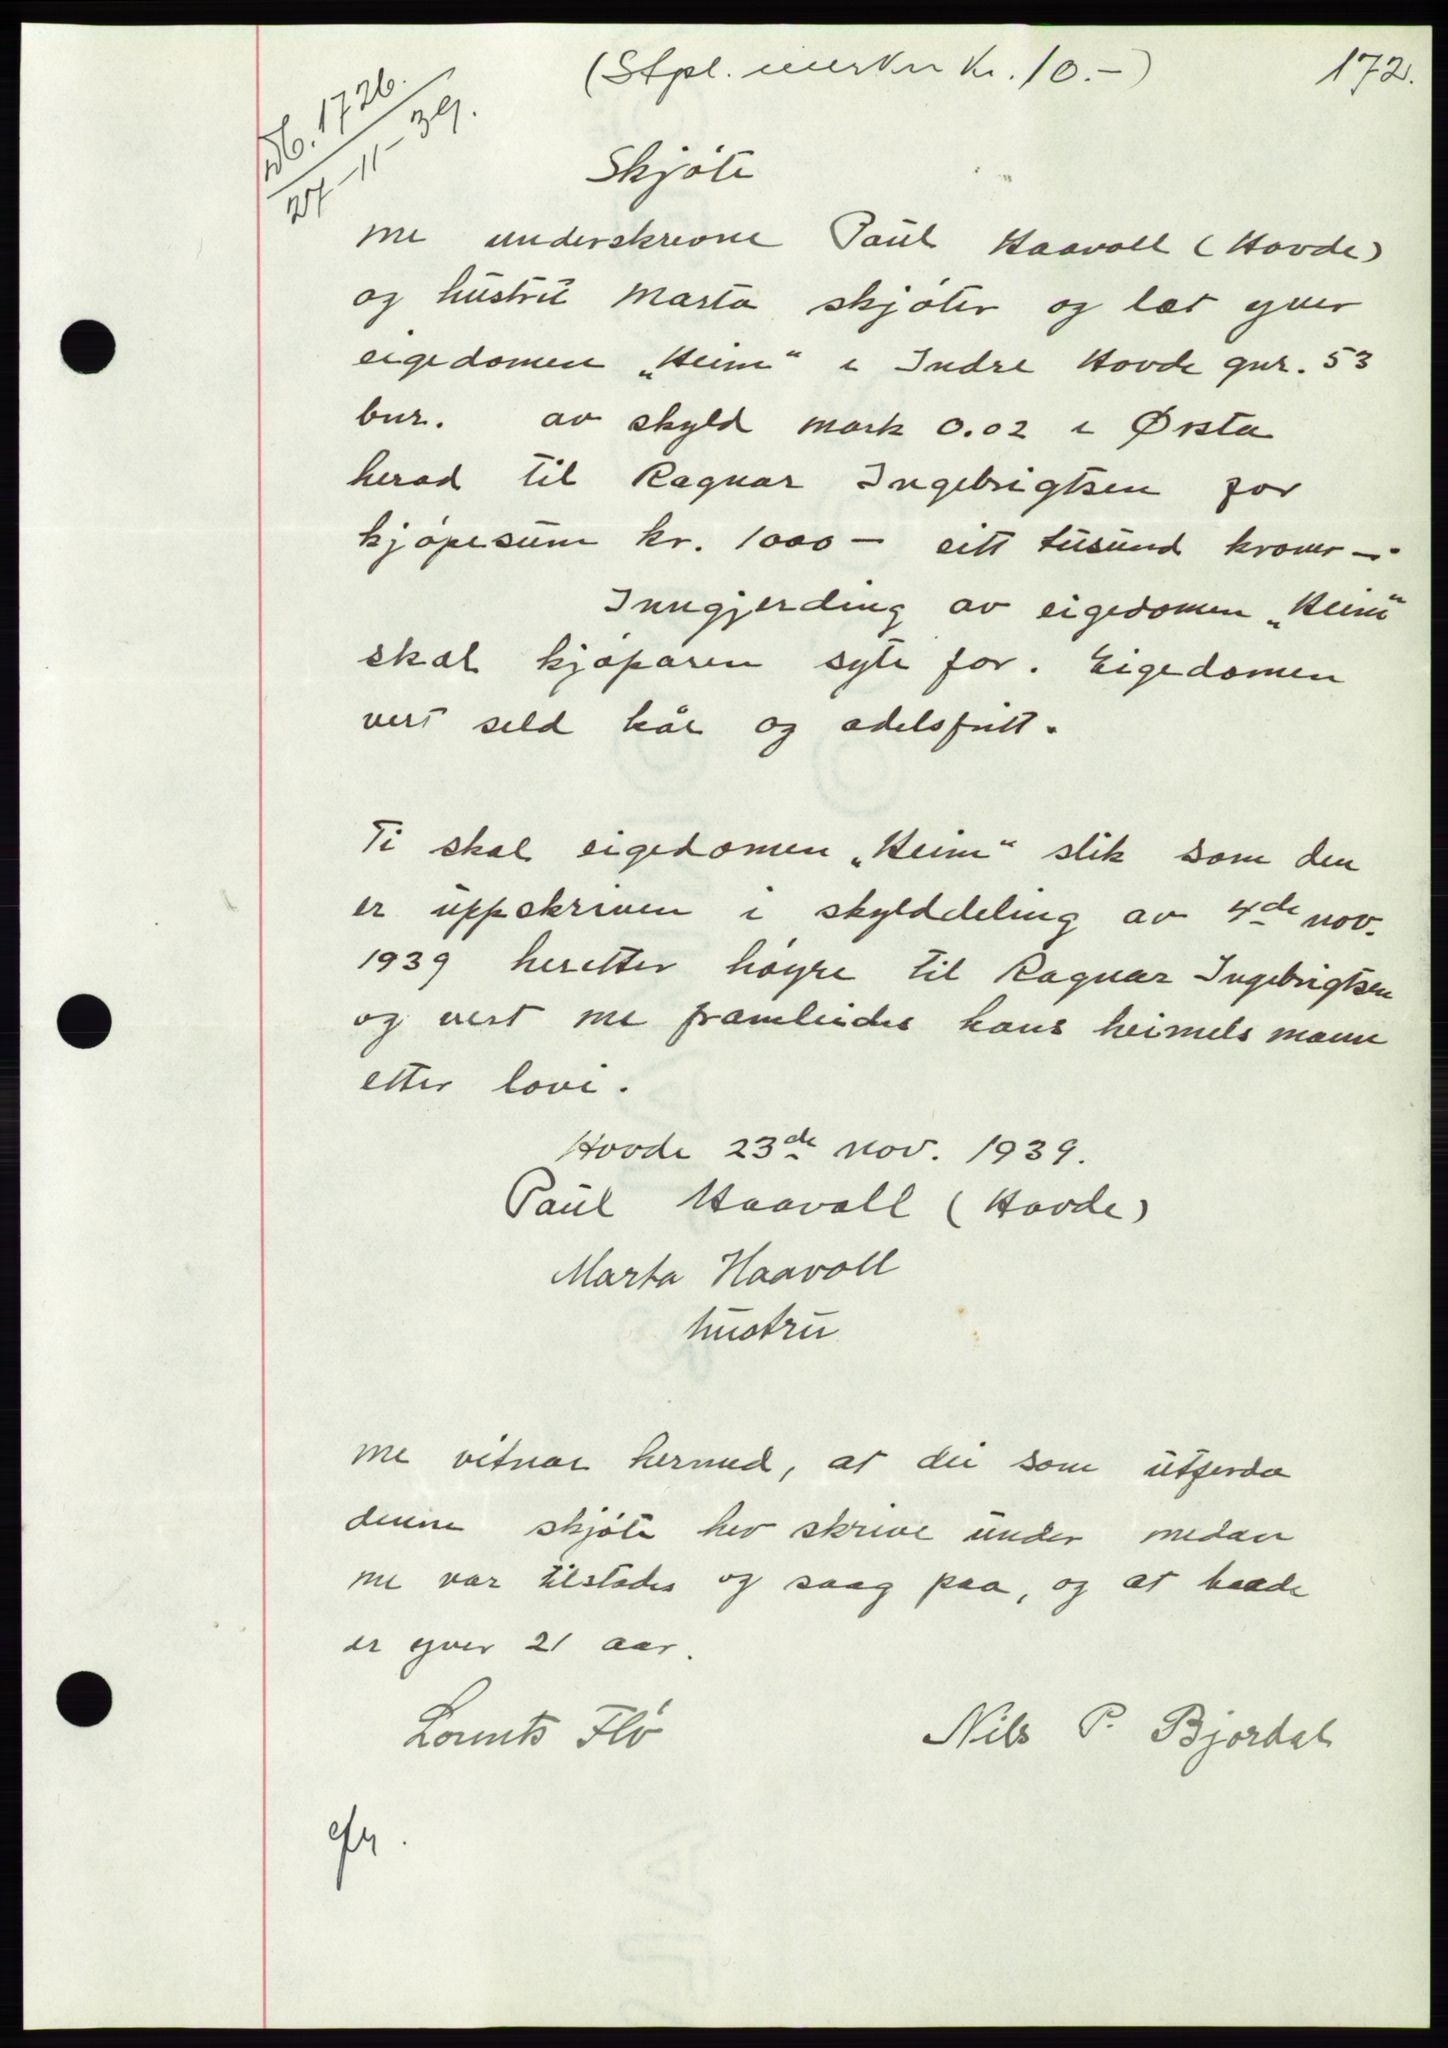 (Stpl. merker kr. 10.-)
172.
Db. 1726.
27-11-39.
Skjöte
Me underskrevne Paul Haavoll (Hovde)
og hustru Marta skjöter og læt yver
eigedomen „Heim“ i Indre Hovde gnr. 53
bnr. av skyld mark 0.02 i Ørsta
herad til Ragnar Ingebrigtsen for
kjöpesum kr. 1000 — eitt tusund kroner —.
Inngjerding av eigedomen „Heim“
skal kjöparen syte for. Eigedomen
vert seld kår og odelsfritt.
Ti skal eigedomen „Heim“ slik som den
er uppskriven i skylddeling av 4de nov.
1939 heretter höyre til Ragnar Ingebrigtsen
og vert me framleides hans heimels mann
etter lovi.
Hovde 23de nov. 1939.
Paul Haavoll (Hovde)
Marta Haavoll
hustru
Me vitnar hermed, at dei som utferda
denne skjöte hev skrive under medan
me var tilstades og saag paa, og at baade
er yver 21 aar.
Lornts Flö
Nils P. Bjordal